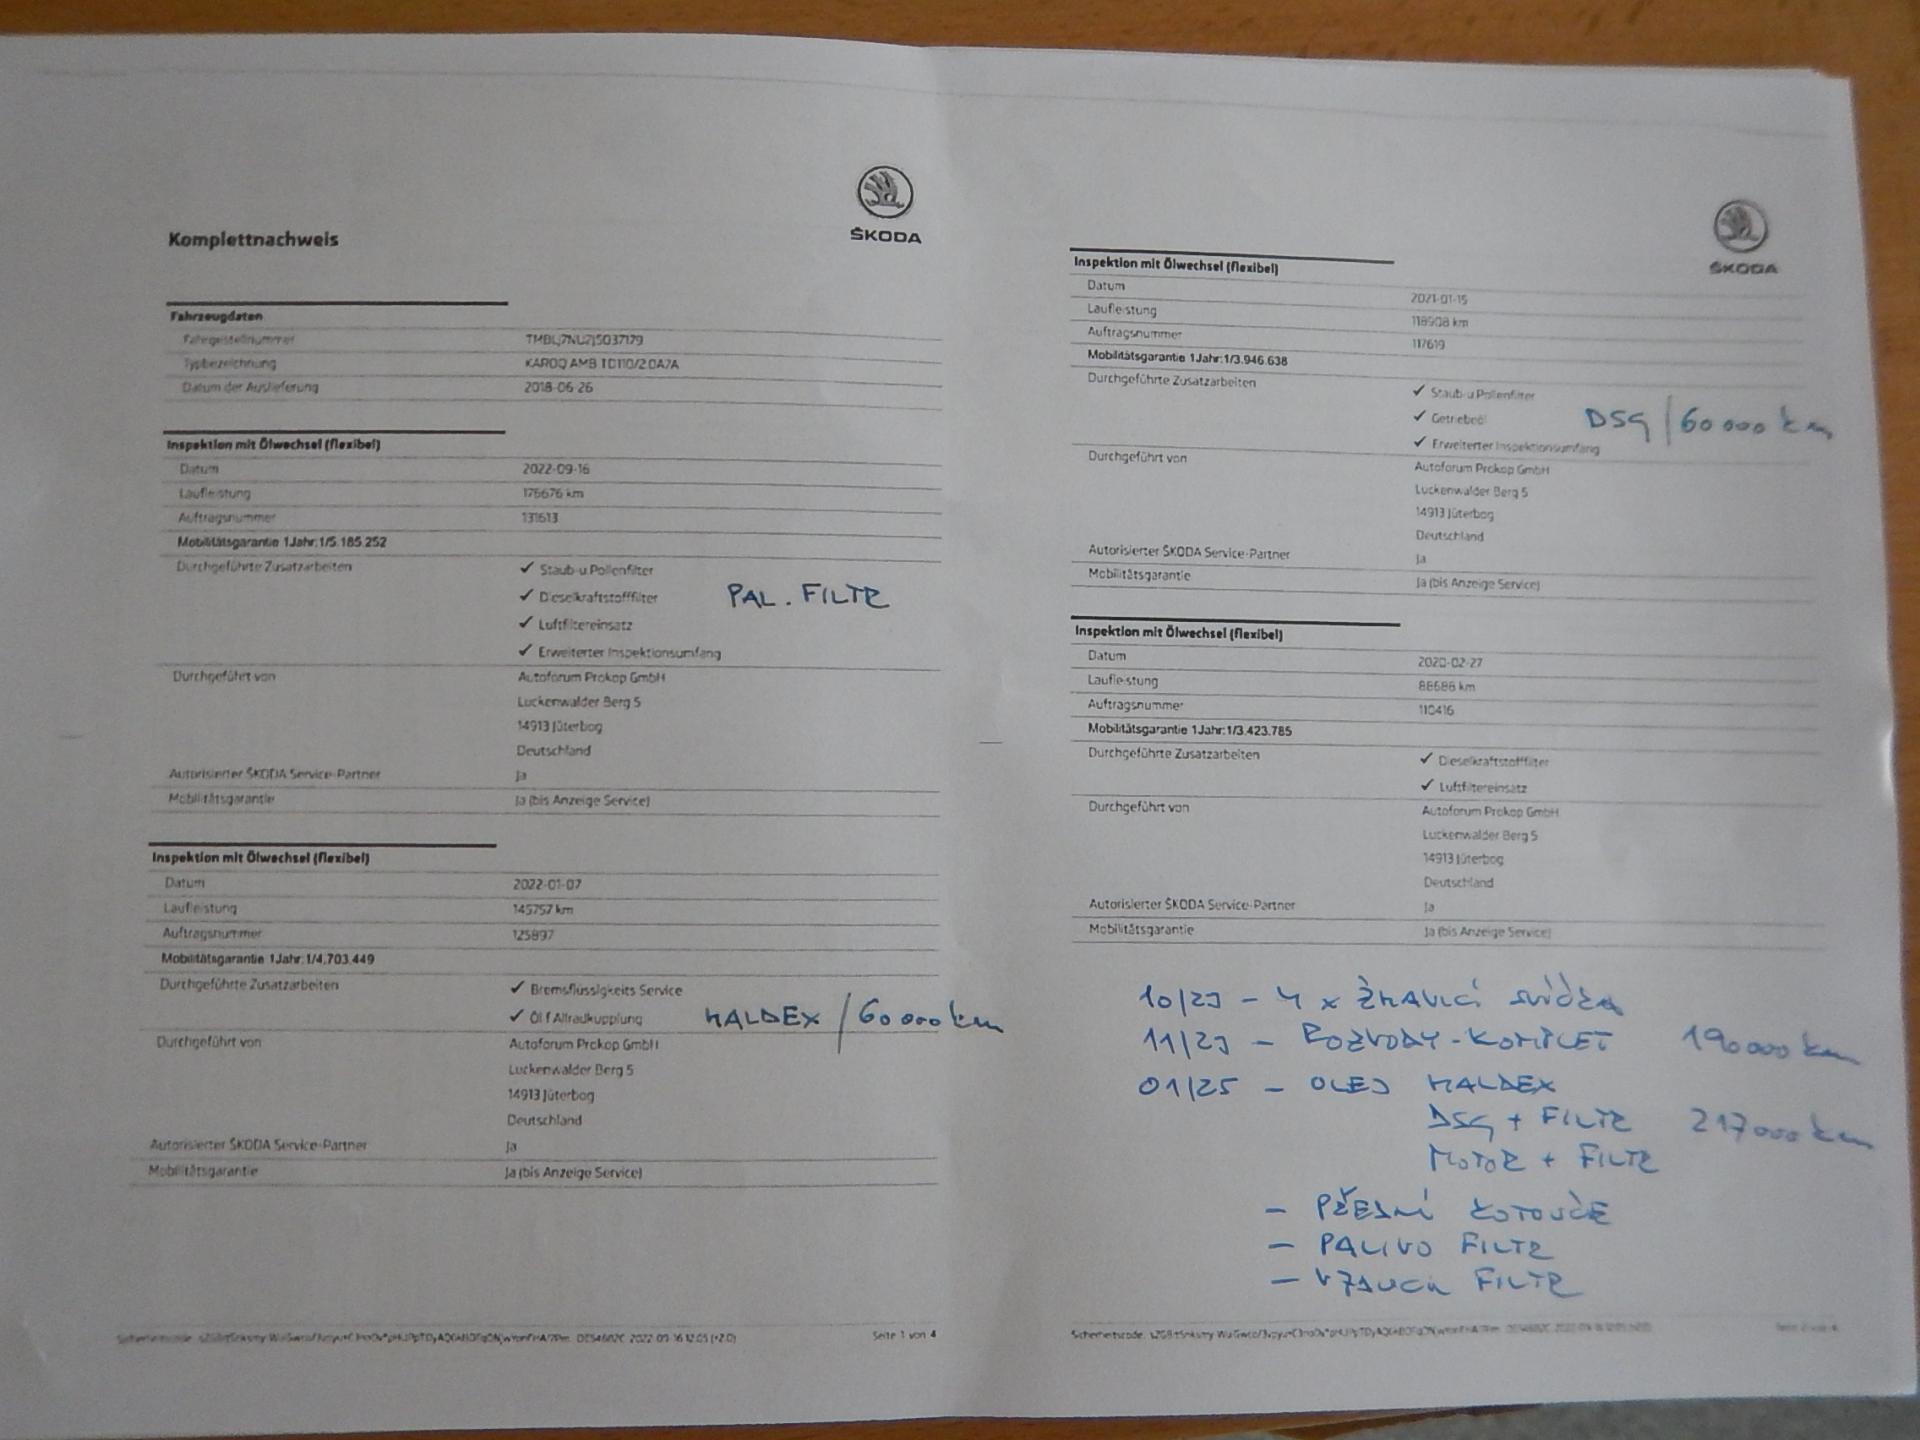 ŠKODA
Komplettnachweis
Fahrzeugdaten
Fahrgestellnummer
Typbezeichnung KAROQ AMB TD110/2.0A7A
Datum der Auslieferung 2018-06-26
Inspektion mit Ölwechsel (flexibel)
Datum 2022-09-16
Laufleistung 176676 km
Auftragsnummer 131613
Mobilitätsgarantie 1 Jahr: 1/5.185.252
Durchgeführte Zusatzarbeiten ✓ Staub-u Pollenfilter
✓ Dieselkraftstofffilter PAL. FILTR
✓ Luftfiltereinsatz
✓ Erweiterter Inspektionsumfang
Durchgeführt von Autoforum Prokop GmbH
Luckenwalder Berg 5
14913 Jüterbog
Deutschland
Autorisierter ŠKODA Service-Partner Ja
Mobilitätsgarantie Ja (bis Anzeige Service)
Inspektion mit Ölwechsel (flexibel)
Datum 2022-01-07
Laufleistung 145757 km
Auftragsnummer 125897
Mobilitätsgarantie 1 Jahr: 1/4.703.449
Durchgeführte Zusatzarbeiten ✓ Bremsflüssigkeits Service
✓ Öl f Allradkupplung HALDEX / 60 000 km
Durchgeführt von Autoforum Prokop GmbH
Luckenwalder Berg 5
14913 Jüterbog
Deutschland
Autorisierter ŠKODA Service-Partner Ja
Mobilitätsgarantie Ja (bis Anzeige Service)
Seite 1 von 4
ŠKODA
Inspektion mit Ölwechsel (flexibel)
Datum 2021-01-15
Laufleistung 118908 km
Auftragsnummer 117619
Mobilitätsgarantie 1 Jahr: 1/3.946.638
Durchgeführte Zusatzarbeiten ✓ Staub-u Pollenfilter
✓ Getriebeöl DSG / 60 000 km
✓ Erweiterter Inspektionsumfang
Durchgeführt von Autoforum Prokop GmbH
Luckenwalder Berg 5
14913 Jüterbog
Deutschland
Autorisierter ŠKODA Service-Partner Ja
Mobilitätsgarantie Ja (bis Anzeige Service)
Inspektion mit Ölwechsel (flexibel)
Datum 2020-02-27
Laufleistung 88688 km
Auftragsnummer 110416
Mobilitätsgarantie 1 Jahr: 1/3.423.785
Durchgeführte Zusatzarbeiten ✓ Dieselkraftstofffilter
✓ Luftfiltereinsatz
Durchgeführt von Autoforum Prokop GmbH
Luckenwalder Berg 5
14913 Jüterbog
Deutschland
Autorisierter ŠKODA Service-Partner Ja
Mobilitätsgarantie Ja (bis Anzeige Service)
10/23 - 4 x ŽHAVICÍ SVÍČKA
11/23 - ROZVODY - KOMPLET 190 000 km
01/25 - OLEJ HALDEX
DSG + FILTR 217 000 km
MOTOR + FILTR
- PŘEDNÍ KOTOUČE
- PALIVO FILTR
- VZDUCH FILTR
Seite 2 von 4